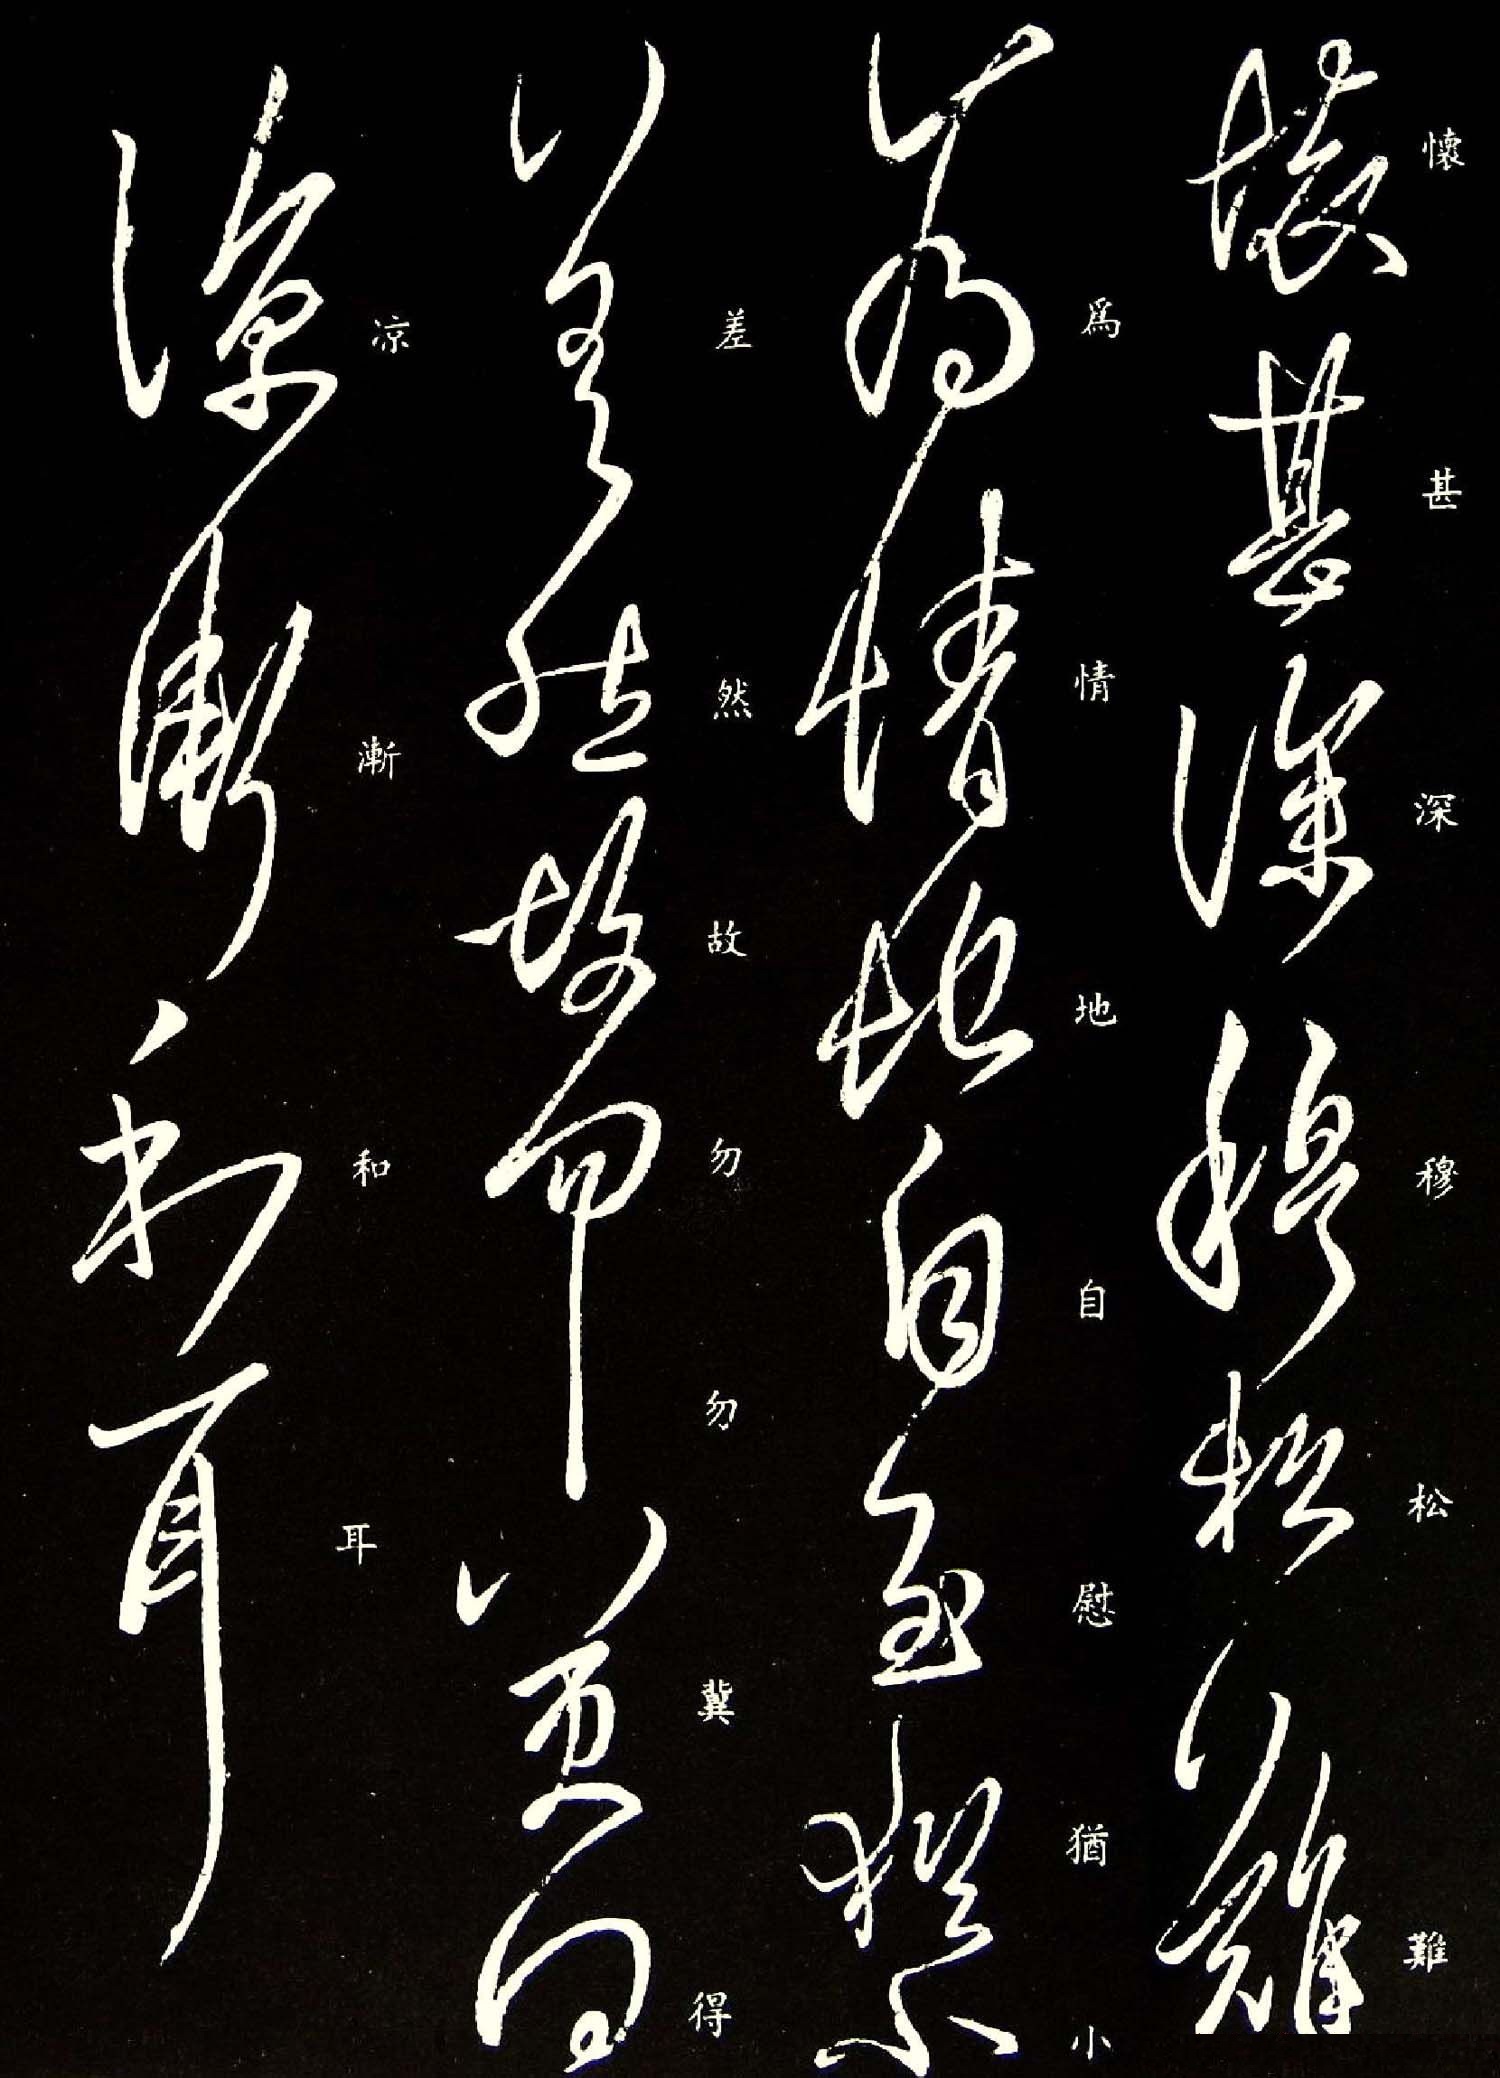 懷甚深穆松難
爲情地自慰猶小
差然故勿勿冀得
凉漸和耳